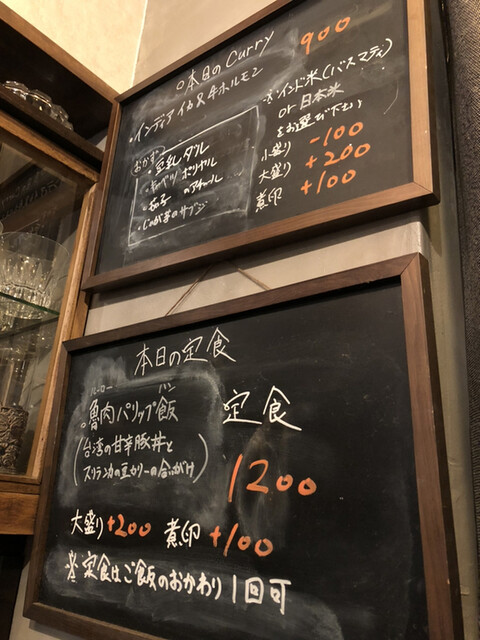 本日のCurry 900
・インディア・イカ&牛ホルモン
※インド米(バスマティ)
or 日本米
をお選び下さい
おかず
・豆乳ダル
・キャベツ ポリヤル
・茄子のアチャール
・じゃがいものサブジ
小盛り -100
大盛り +200
煮卵 +100
本日の定食
ルーロー ハン
魯肉パリップ飯
(台湾の甘辛豚丼と
スリランカの豆カリーの合いがけ)
定食
1200
大盛り+200 煮卵 +100
※定食はご飯のおかわり1回可